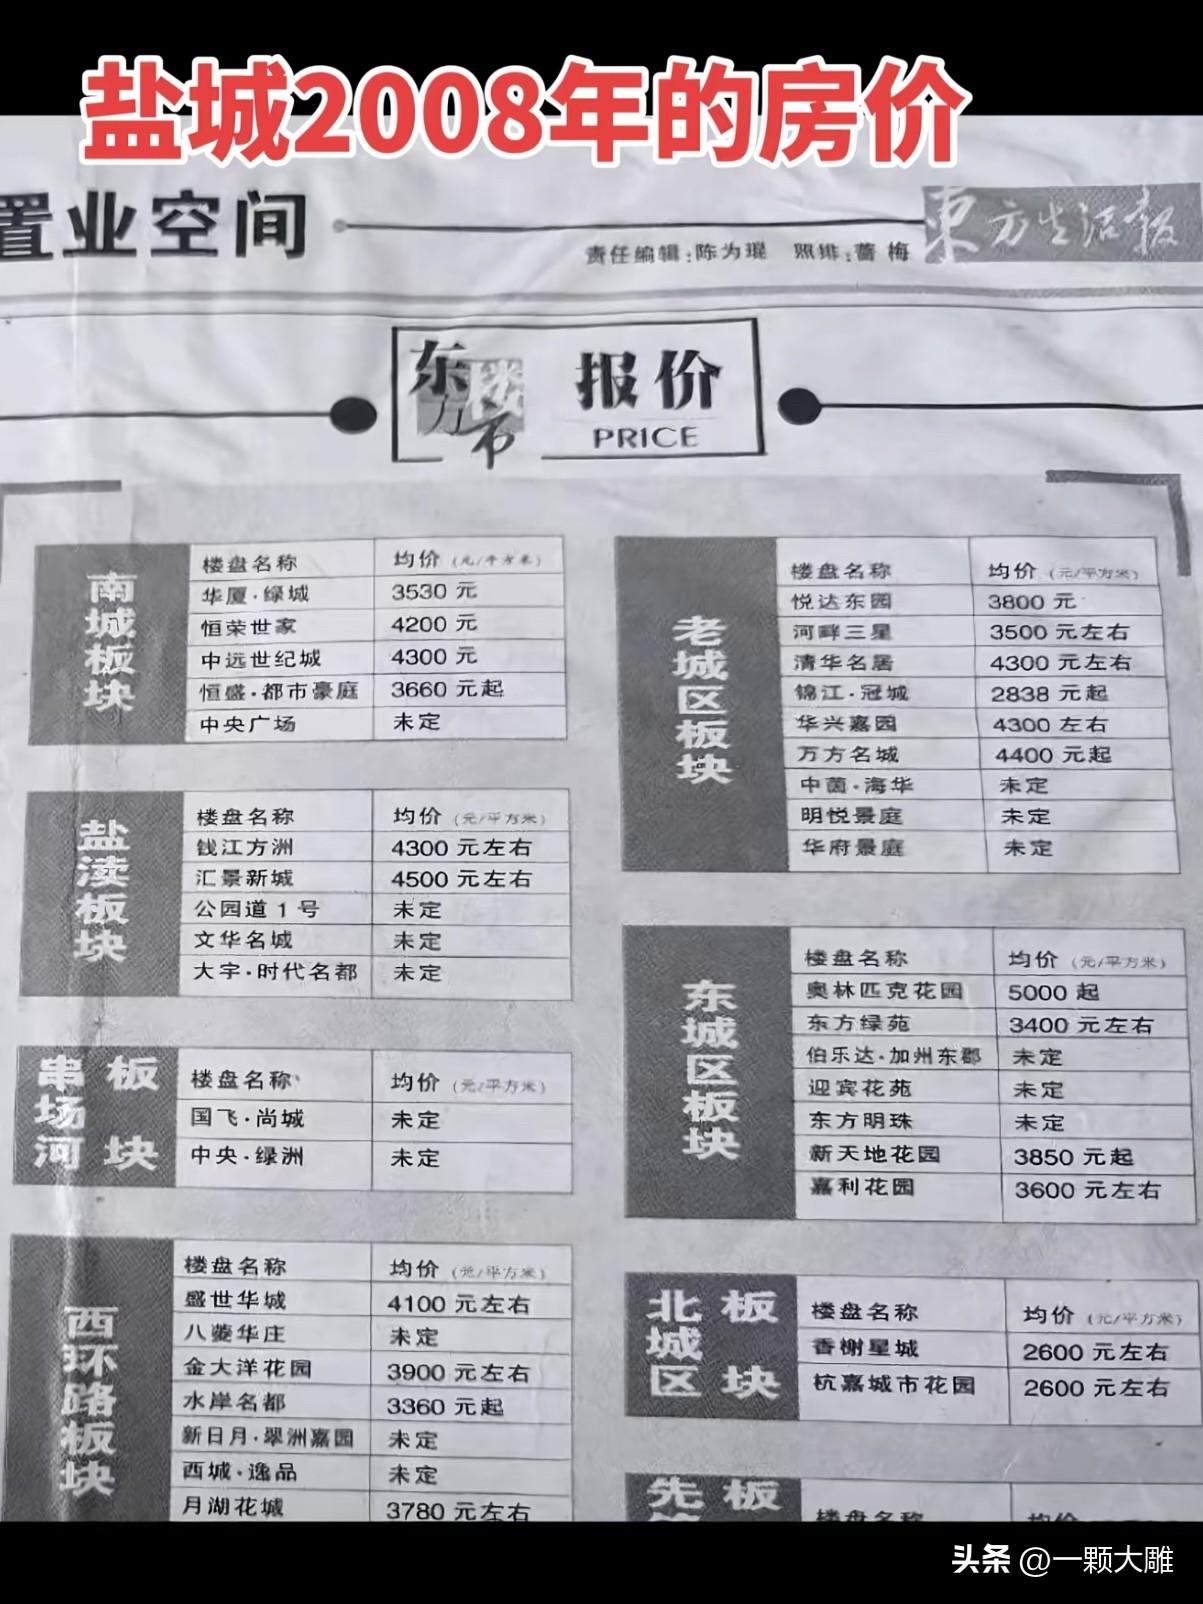 盐城2008年的房价
置业空间
责任编辑:陈为琨 照排:蔷梅
东方生活报
东方楼市 报价
PRICE
南城板块
楼盘名称 均价(元/平方米)
华厦·绿城 3530 元
恒荣世家 4200 元
中远世纪城 4300 元
恒盛·都市豪庭 3660 元起
中央广场 未定
盐渎板块
楼盘名称 均价(元/平方米)
钱江方洲 4300 元左右
汇景新城 4500 元左右
公园道 1 号 未定
文华名城 未定
大宇·时代名都 未定
串场河板块
楼盘名称 均价(元/平方米)
国飞·尚城 未定
中央·绿洲 未定
西环路板块
楼盘名称 均价(元/平方米)
盛世华城 4100 元左右
八菱华庄 未定
金大洋花园 3900 元左右
水岸名都 3360 元起
新日月·翠洲嘉园 未定
西城·逸品 未定
月湖花城 3780 元左右
老城区板块
楼盘名称 均价(元/平方米)
悦达东园 3800 元
河畔三星 3500 元左右
清华名居 4300 元左右
锦江·冠城 2838 元起
华兴嘉园 4300 左右
万方名城 4400 元起
中茵·海华 未定
明悦景庭 未定
华府景庭 未定
东城区板块
楼盘名称 均价(元/平方米)
奥林匹克花园 5000 起
东方绿苑 3400 元左右
伯乐达·加州东郡 未定
迎宾花苑 未定
东方明珠 未定
新天地花园 3850 元起
嘉利花园 3600 元左右
北城区板块
楼盘名称 均价(元/平方米)
香榭星城 2600 元左右
杭嘉城市花园 2600 元左右
先 板
楼盘名称 均价
头条 @一颗大雕